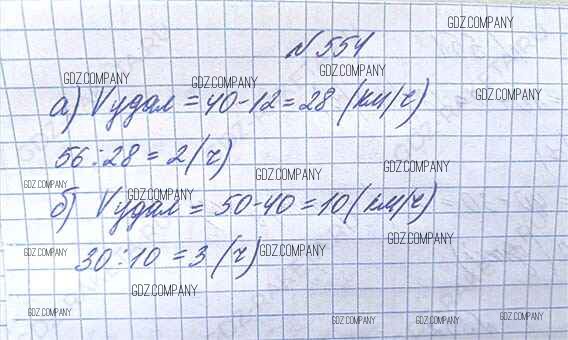 GDZ.COMPANY
№ 554
GDZ.COMPANY GDZ.COMPANY GDZ.COMPANY
а) Vудал = 40-12 = 28 (км/ч)
GDZ.COMPANY
56:28 = 2 (ч)
GDZ.COMPANY GDZ.COMPANY GDZ.COMPANY
б) Vудал = 50-40 = 10 (км/ч)
GDZ.COMPANY GDZ.COMPANY GDZ.COMPANY
30:10 = 3 (ч)
GDZ.COMPANY
GDZ.COMPANY GDZ.COMPANY GDZ.COMPANY GDZ.COMPANY